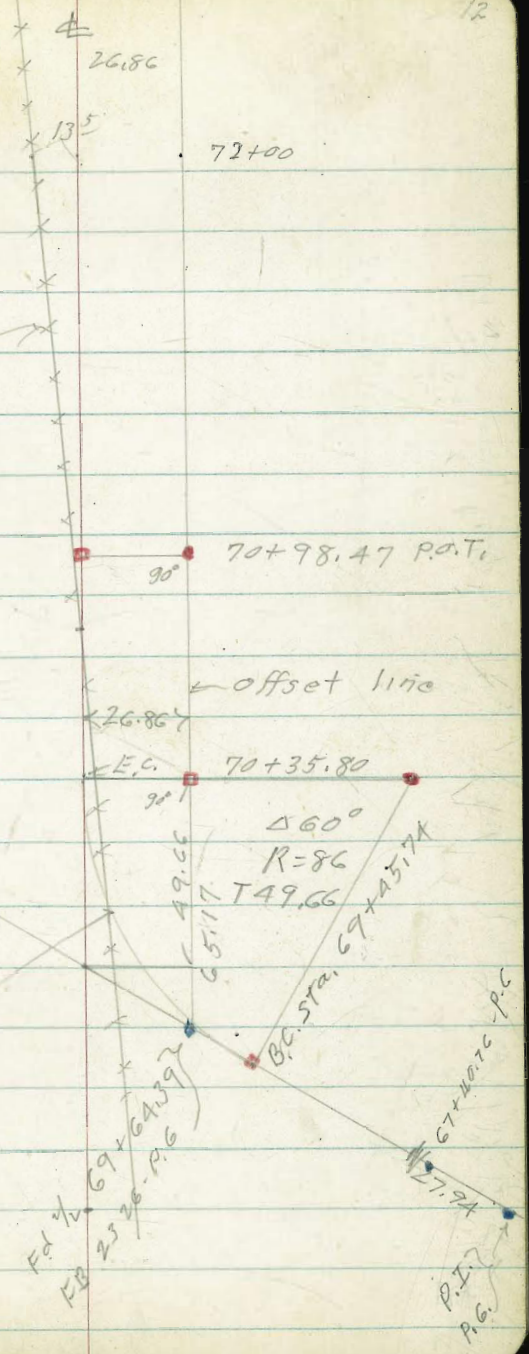 12
℄
26.86
13⁵
72+00
70+98.47 P.O.T.
90°
← Offset line
26.86
E.C.
70+35.80
90°
Δ 60°
R=86
T 49.66
49.66
65.17
B.C. Sta. 69+45.74
69+64.39
67+40.76 - P.C
27.94
Fd 2/2
FB 2326 - P.6
P.I.?
P.6.